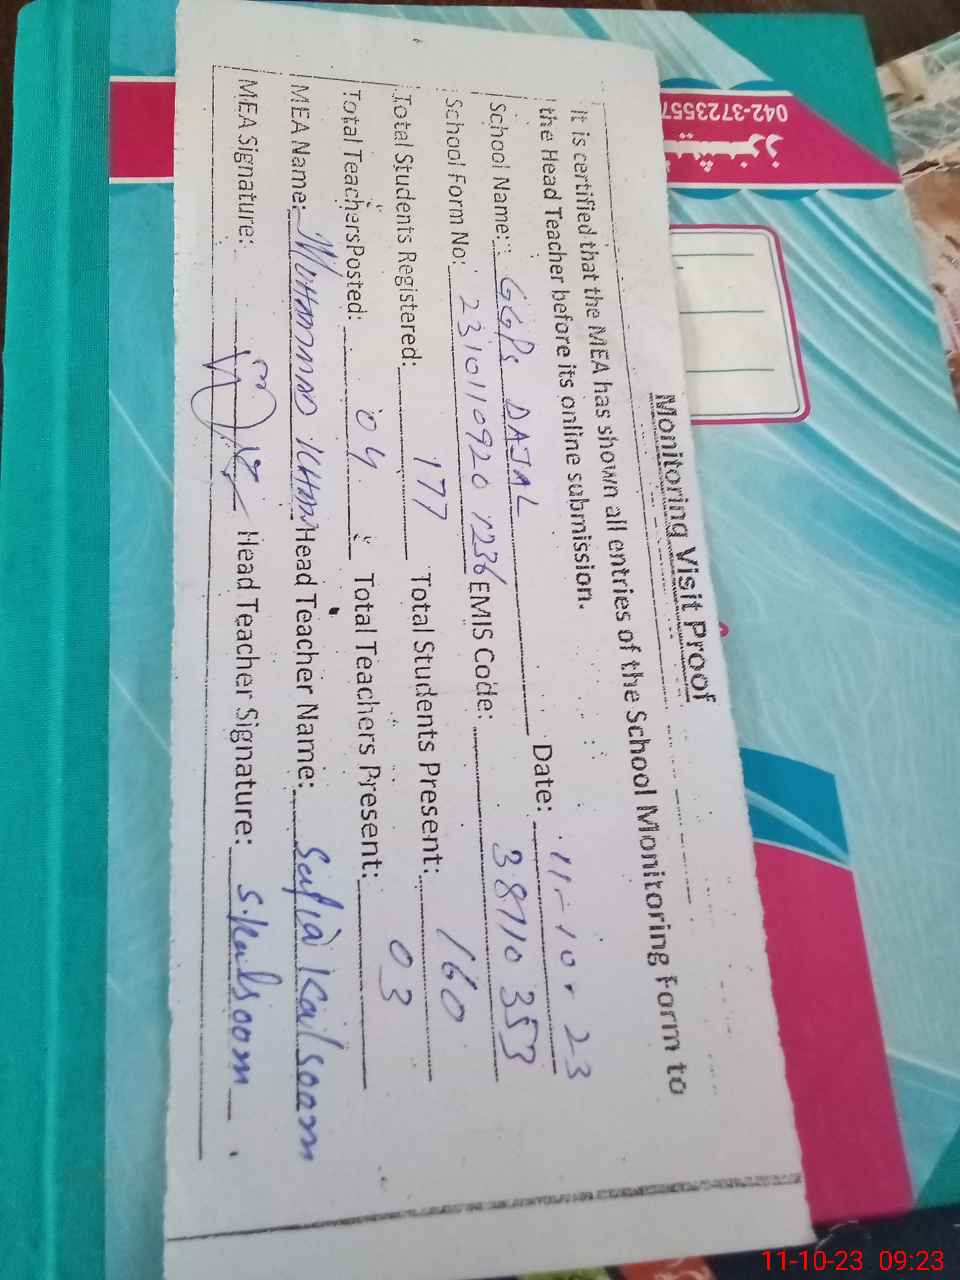 Monitoring Visit Proof
It is certified that the MEA has shown all entries of the School Monitoring Form to
the Head Teacher before its online submission.
School Name: GGPS DAJAL Date: 11-10-23
School Form No: 23101109201236 EMIS Code: 38710353
Total Students Registered: 177 Total Students Present: 160
Total TeachersPosted: 04 Total Teachers Present: 03
MEA Name: MUHAMMAD KHAN Head Teacher Name: Safia Kalsoom
MEA Signature: Head Teacher Signature: S.kalsoom
042-3723557
11-10-23 09:23